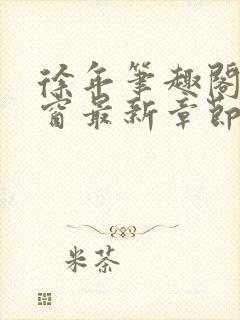 徐年笔趣阁
窗最新章節
米茶